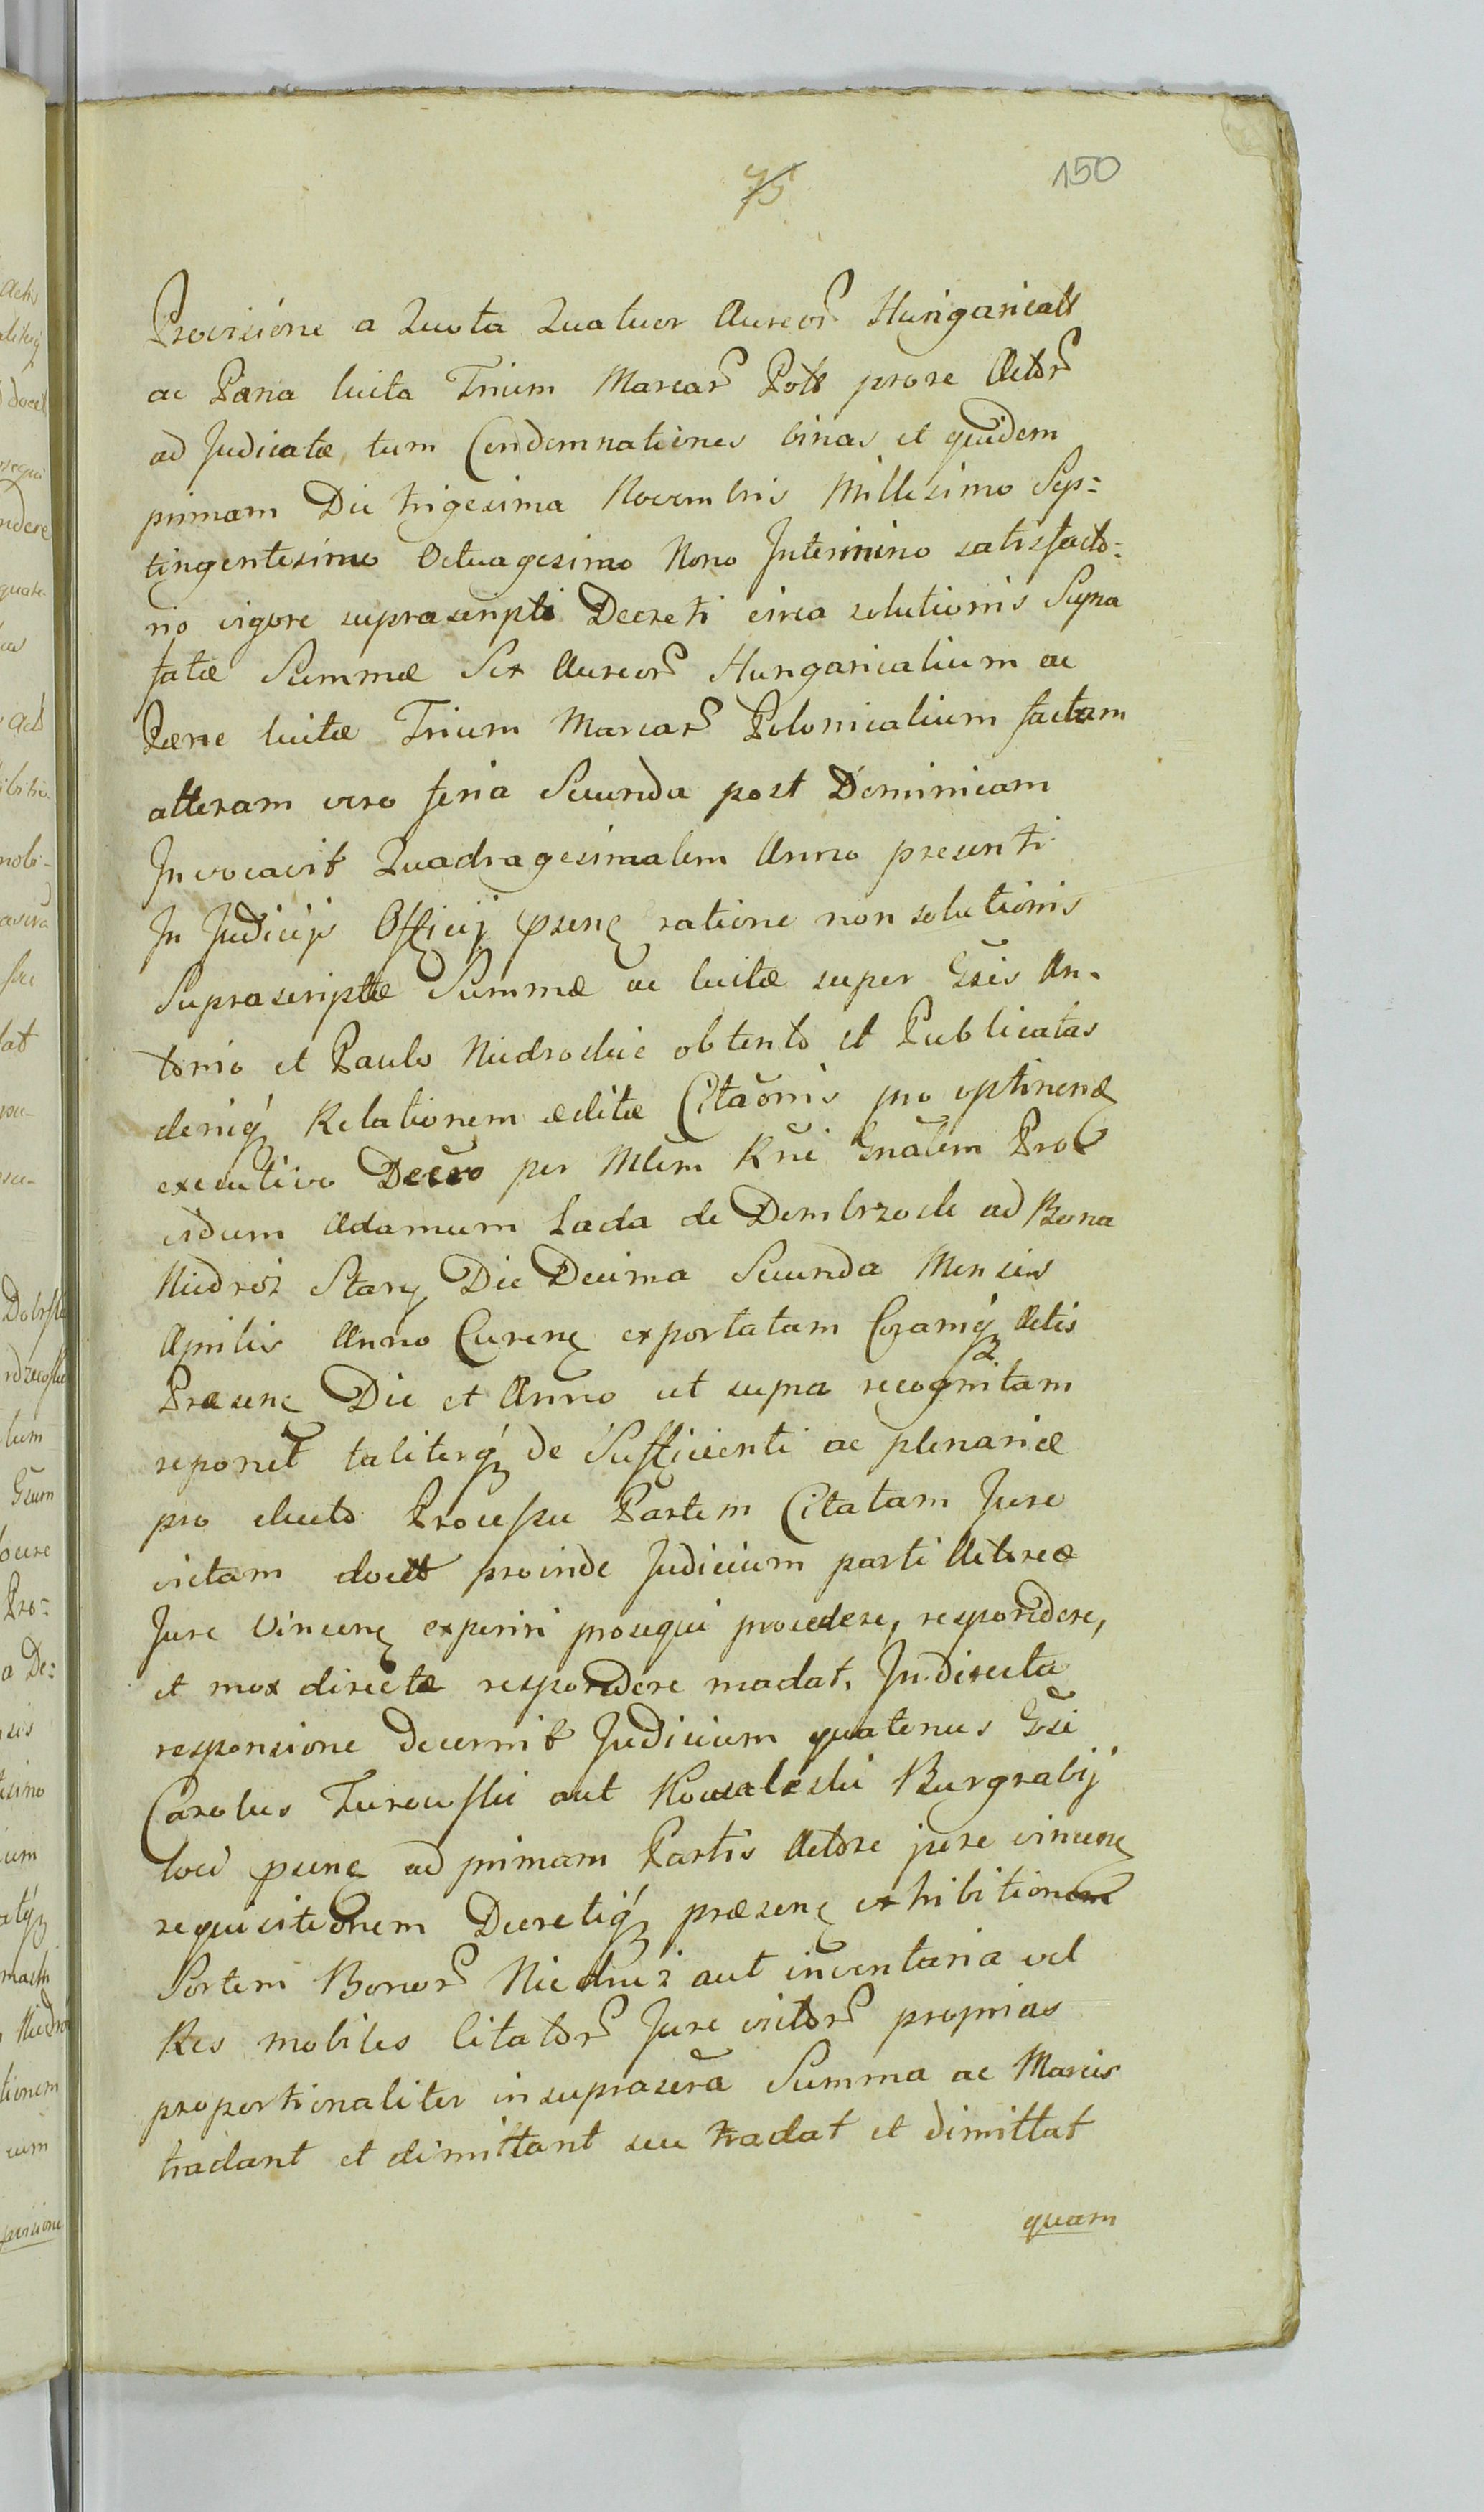 75
150
Provisione a Quota Quatuor Aureor Hungaricall
ac Pæna luita Trium Marcar Poll prore Actor
ad Judicatæ, tum Condemnationes binas et quidem
primam Die trigesima Novembris Millesimo Sep:
tingentesimo Octuagesimo Nono Intermino satisfacto:
rio vigore suprascripti Decreti circa solutionis Supra
fatæ Summæ Sex Aureor Hungaricalium ac
Pæne luitæ Trium Marcar Polonicalium factam
alteram vero feria Secunda post Dominicam
Invocavit Quadragesimalem Anno presenti
In Judicijs Officij psenς ratione non solutionis
Suprascriptæ Summæ ac luitæ super Gsis An-
tonio et Paulo Niedroskie obtento et Publicatas
deniq Relationem æditæ Citaõnis pro optinenς
executivo Decro per Mlem Rni Gnalem Pro
vidum Adamum Lada de Dembrzock ad Bona
Niedroż Stary Die Decima Secunda Mensis
Aprilis Anno Curenς exportatam Coramq Actis
Præsenς Die et Anno ut supra recognitam
reponit taliterq de Sufficienti ac plenariæ
pro ducto Processu Partem Citatam Jure
victam docet proinde Judicium parti Actoreæ
Jure Vincenς experiri prosequi procedere, respondere,
et mox directæ respondere madat. In directa
responsione decernit Judicium quatenus Gsi
Carolus Turowski aut Kowaleski Burgrabij
loci psenς ad primam Partis Actore jure vincenς
requisitionem Decretiq præsenς exhibitionem
Sortem Bonor Niedroż aut inventaria vel
Res mobiles Citator Jure victor proprias
proportionaliter in suprascra Summa ac Marcis
tradant et dimittant seu tradat et dimittat
quam